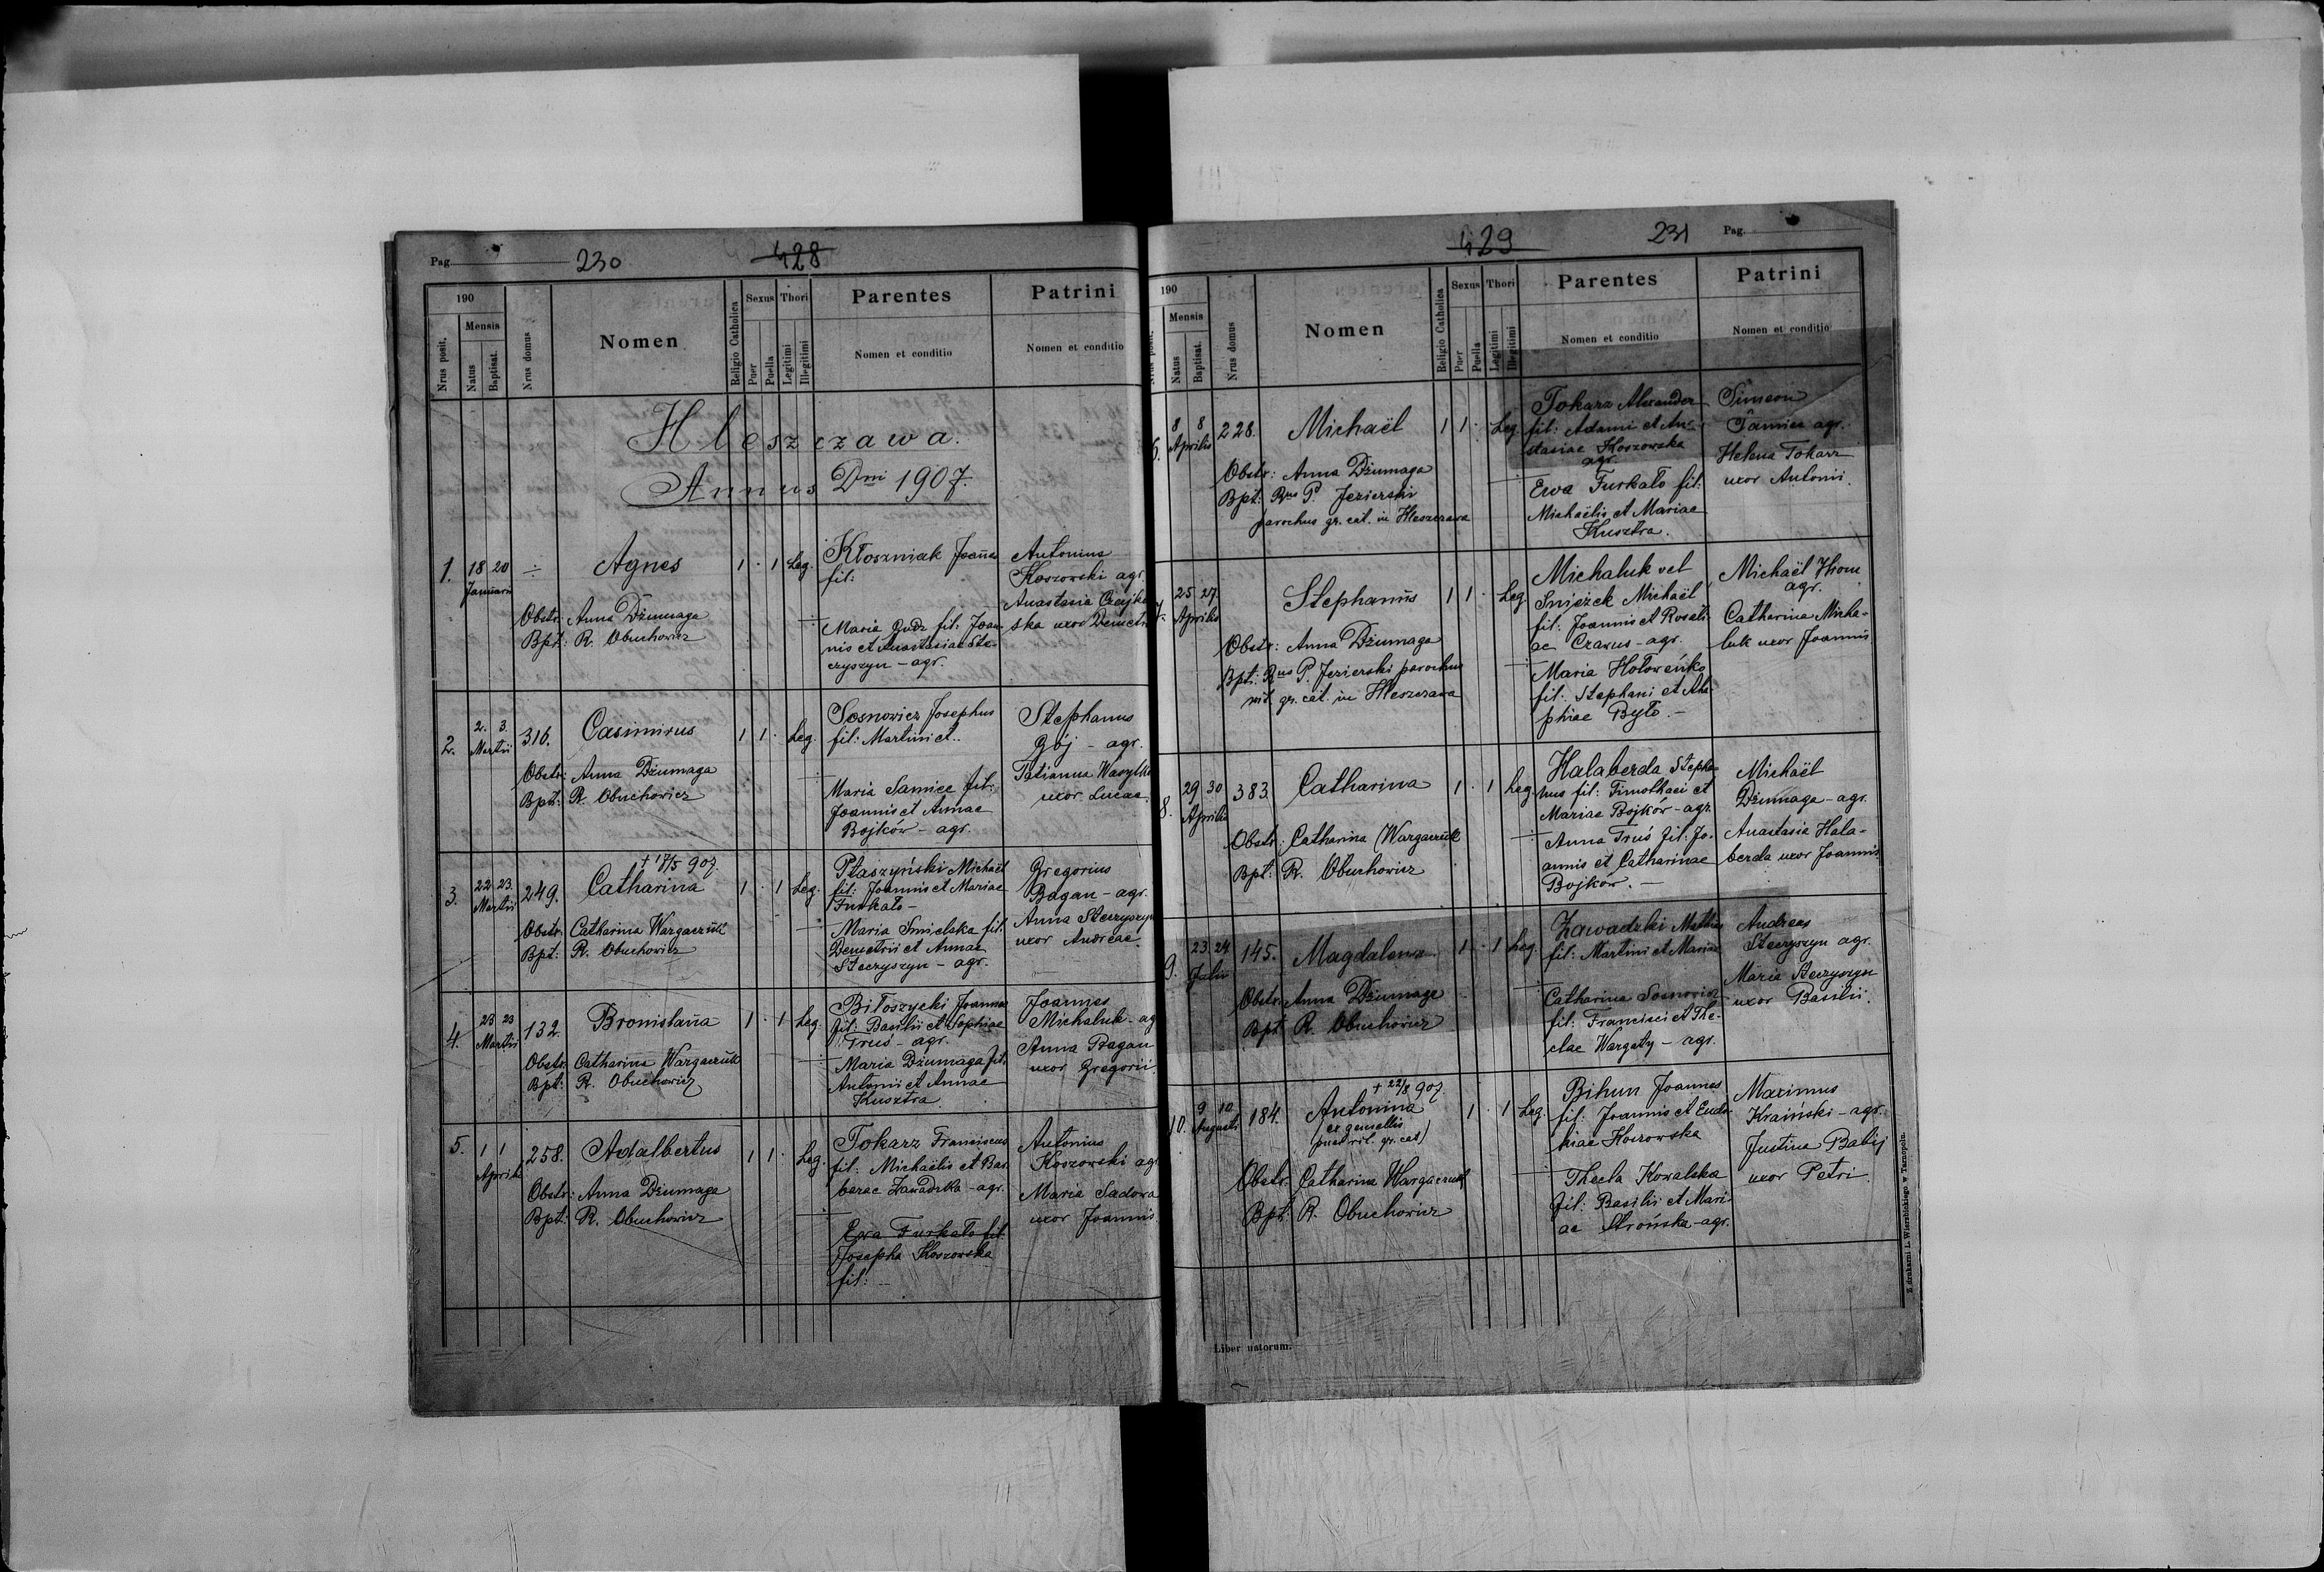 Pag. 230 428
190
Nrus posit.
Mensis
Natus
Baptisat.
Nrus domus
Nomen
Religio Catholica
Sexus
Puer
Puella
Thori
Legitimi
Illegitimi
Parentes
Nomen et conditio
Patrini
Nomen et conditio
Hleszczawa.
Annus Dni 1907.
1. 18 20 Januarii ÷ Agnes 1 · 1 Leg.
Obstr: Anna Dżumaga
Bpt: R. Obuchowicz
Kłoszniak Joannes
fil:
Maria Gudz fil: Joan-
nis et Anastasiae Ste-
czyszyn - agr.
Antonius
Koszowski agr.
Anastasia
ska uxor
2. 2. 3. Martii 316. Casimirus 1 1 · Leg.
Obstr: Anna Dżumaga
Bpt: R. Obuchowicz
Sosnowicz Josephus
fil: Martini et..
Maria Samiec fil:
Joannis et Annae
Bojków - agr.
Stephanus
Gój - agr.
Tatianna
uxor Lucae
3. 22 23. Martii 249. † 17/5 907. Catharina 1 · 1 Leg.
Obstr. Catharina Wargaczuk
Bpt: R. Obuchowicz
Ptaszyński Michaël
fil: Joannis et Mariae
Furkało -
Maria Smielska fil:
Demetrii et Annae
Steczyszyn - agr.
Gregorius
Bagan - agr.
Anna Steczyszyn
uxor Andreae
4. 23 23 Martii 132 Bronislaŭa 1 · 1 Leg.
Obstr: Catharina Wargaczuk
Bpt: R. Obuchowicz
Biłoszycki Joannes
fil: Basilii et Sophiae
Truś - agr.
Maria Dżumaga fil.
Antonii et Annae
Kusztra
Joannes
Michaluk - ag
Anna Bagan
uxor Gregorii
5. 1 1 Aprilis 258. Adalbertus 1 1 · Leg.
Obstr: Anna Dżumaga
Bpt: R. Obuchowicz
Tokarz Franciscus
fil: Michaëlis et Bar-
barae Zawadzka - agr.
Ewa Furkało fil.
Josepha Koszowska
fil: -
Antonius
Koszowski ag
Maria Sadowa
uxor Joannis
429 231 Pag.
190
Nrus posit.
Mensis
Natus
Baptisat.
Nrus domus
Nomen
Religio Catholica
Sexus
Puer
Puella
Thori
Legitimi
Illegitimi
Parentes
Nomen et conditio
Patrini
Nomen et conditio
6. 8 8 Aprilis 228. Michaël 1 1 · Leg
Obstr: Anna Dżumaga
Bpt: Rms P. Jezierski
parochus gr. cat. in Hleszczawa
Tokarz Alexander
fil: Adami et An-
stasiae Koszowska
agr.
Ewa Furkało fil:
Michaëlis et Mariae
Kusztra.
Simeon
Samiec agr.
Helena Tokarz
uxor Antonii.
7. 25 27 Aprilis Stephanŭs 1 1 · Leg
Obstr: Anna Dżumaga
Bpt: Rms P. Jezierski parochus
rit. gr. cat. in Hleszczawa
Michaluk vel
Snieżek Michaël
fil: Joannis et Rosali-
ae Crasus - agr.
Maria Hołoweńko
fil: Stephani et
phiae Było. -
Michaël Hrom
agr.
Catharina Micha-
luk uxor Joannis
8. 29 30 Aprilis 383. Catharina 1 · 1 Leg
Obstr: Catharina Wargaczuk
Bpt: R. Obuchowicz
Halaberda Stepha-
nus fil: Timothaei et
Mariae Bojków - agr.
Anna Truś fil: Jo-
annis et Catharinae
Bojków. -
Michaël
Dżumaga - agr.
Anastasia Hala-
berda uxor Joannis
9. 23. 24 Julii 145. Magdalena 1 · 1 Leg.
Obstr: Anna Dżumaga
Bpt: R. Obuchowicz
Zawadzki Mathias
fil: Martini et Mariae
Catharina Sosnowicz
fil: Francisci et The-
clae Wargaty - agr.
Andreas
Steczyszyn agr.
Maria Steczyszyn
uxor Basilii.
10. 9 10 Augusti 184. † 22/8 907. Antonina 1 · 1 Leg.
ex gemellis
puer rit. gr. cat)
Obstr. Catharina Wargaczuk
Bpt: R. Obuchowicz
Bihun Joannes
fil: Joannis et Eudo-
kiae Koszowska
Thecla Kowalska
fil: Basilii et Mari-
ae Strońska - agr.
Maximus
Kraiński - agr.
Justina Babij
uxor Petri.
Liber natorum.
Z drukarni L. Wierzbickiego w Tarnopolu.